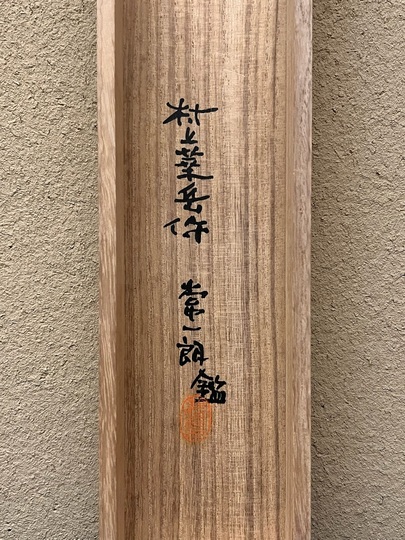 村上華岳作 常一郎鑑